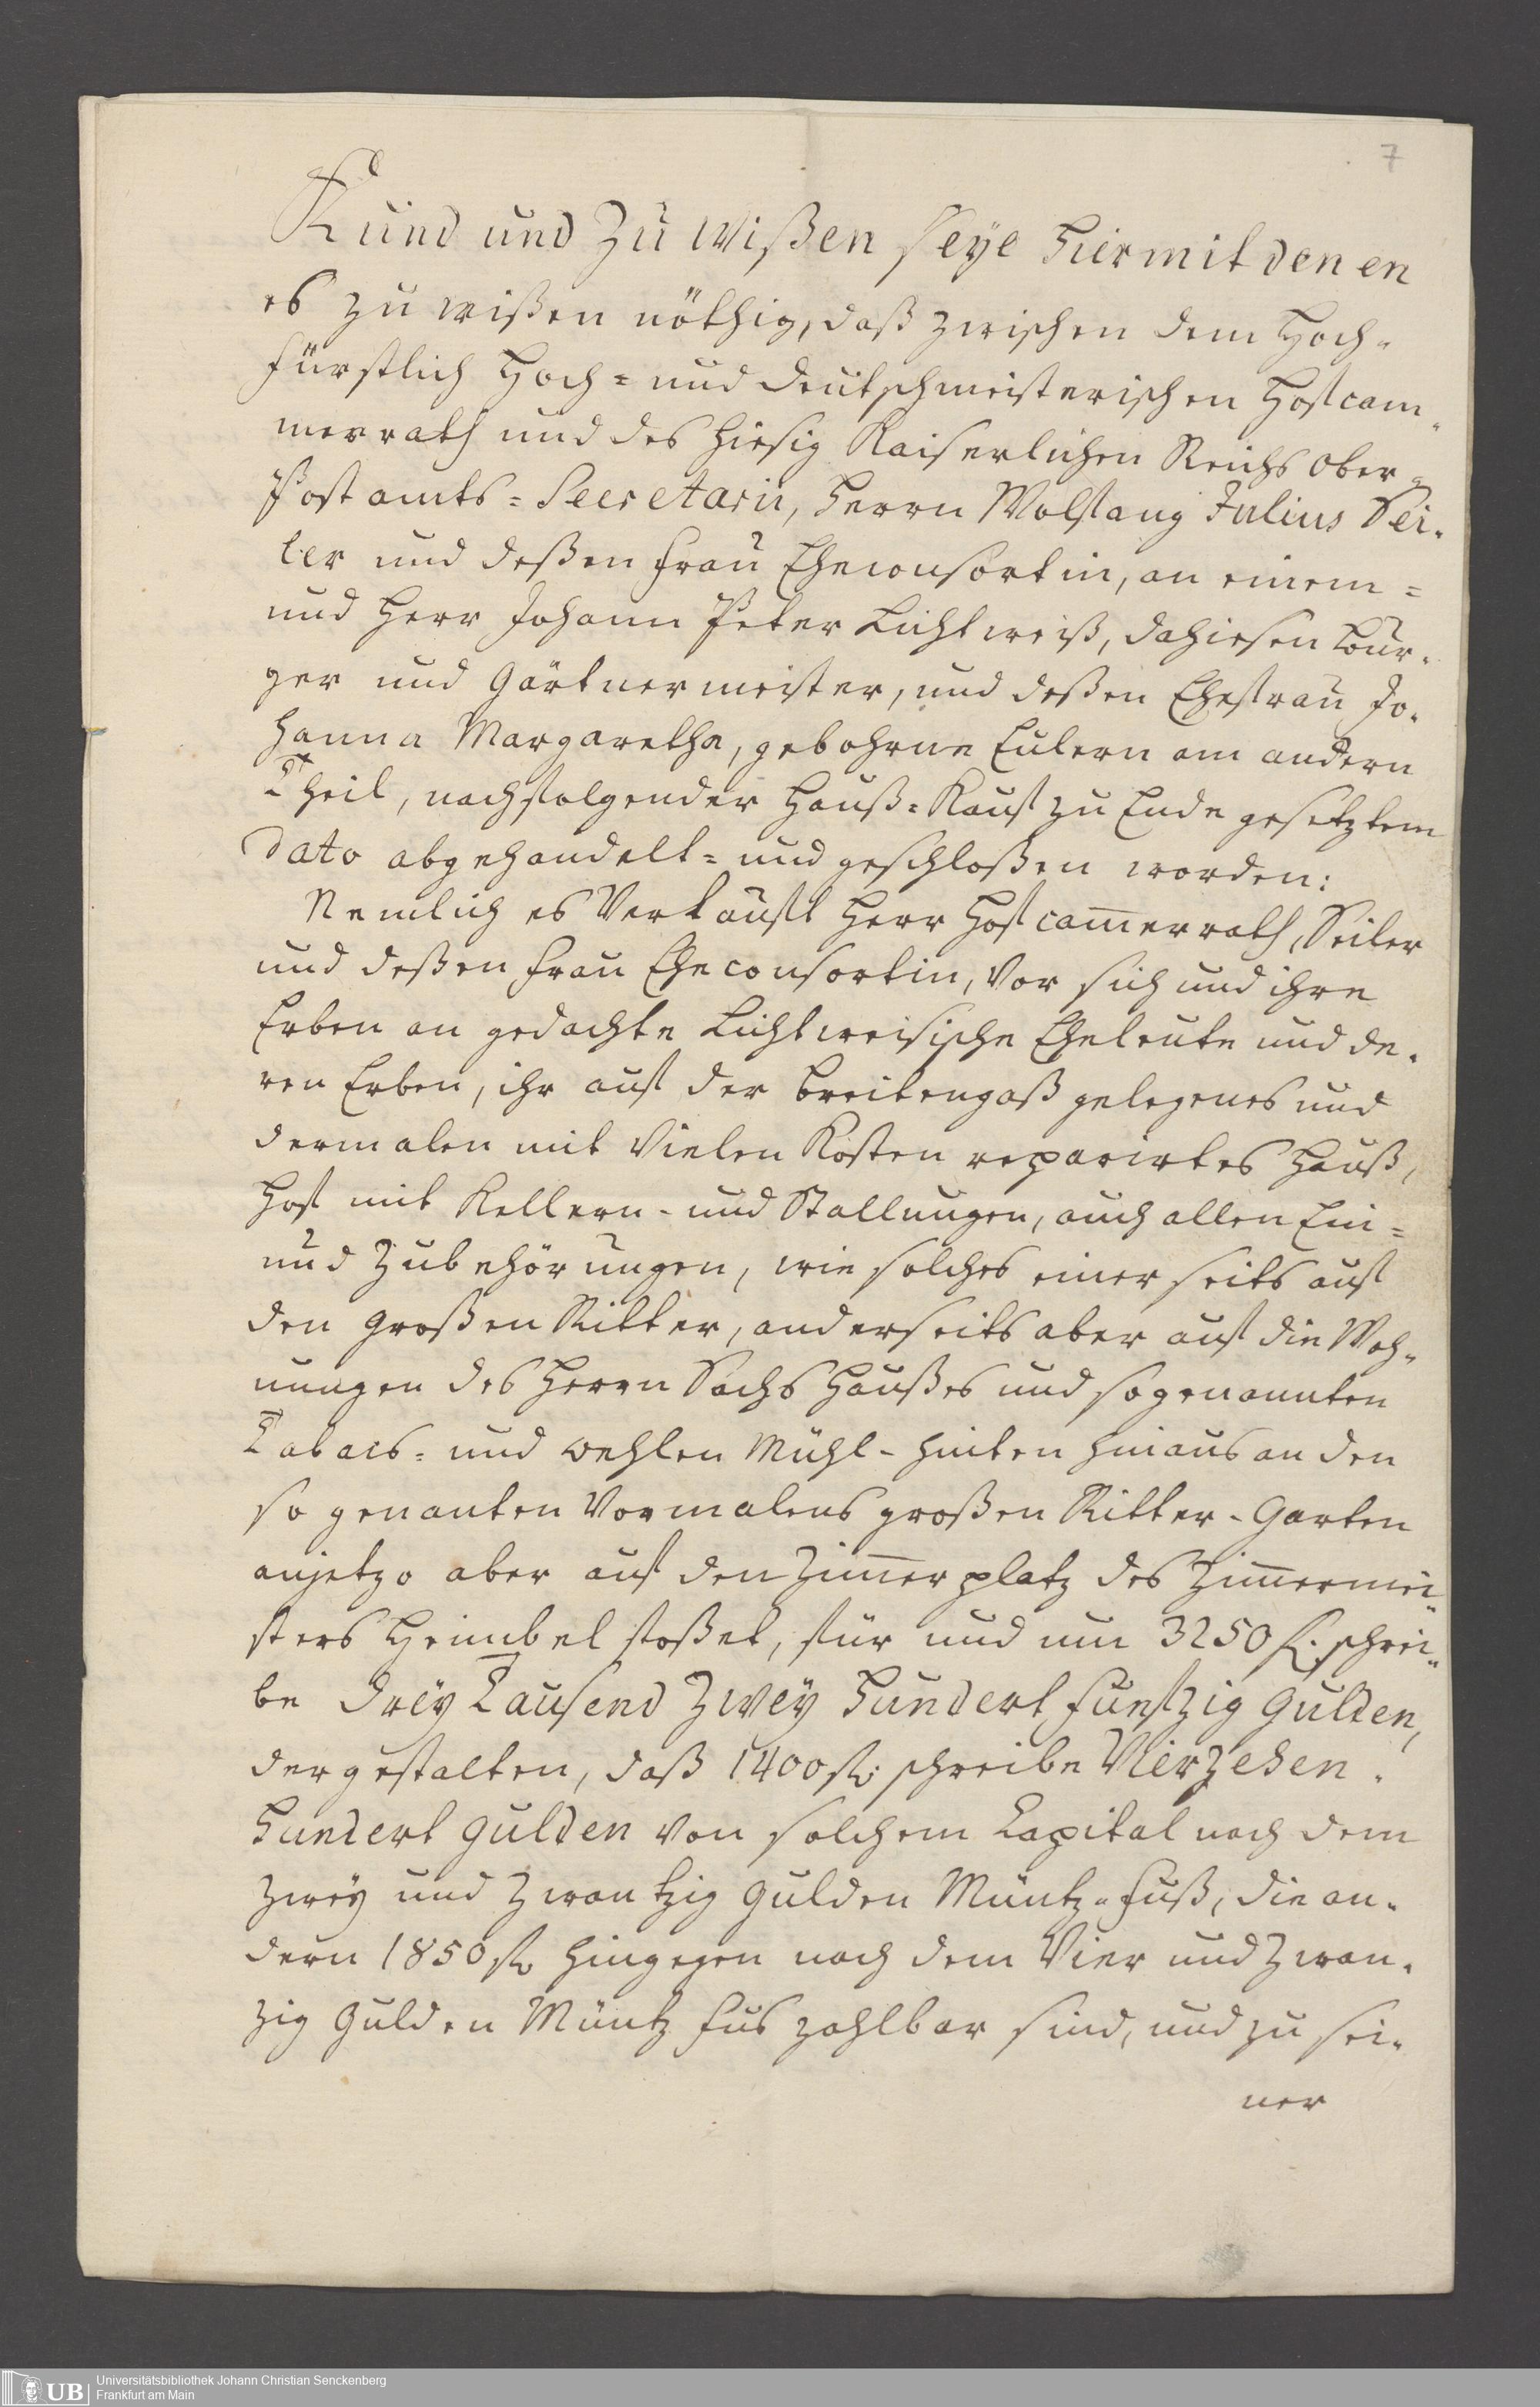 7
Kund und Zu wißen seye hiermit denen
es zu wißen nöthig, daß zwischen dem Hoch-
fürstlich Hoch- und deutschmeisterischen Hofcam-
merrath und des hiesig Kaiserlichen Reichs Ober-
Postamts-Secretarii, Herrn Wolfgang Julius Sei-
ler und deßen Frau Eheconsortin, an einem-
und Herr Johann Peter Lichtweiß, dahiesen Bür-
ger und Gärtnermeister, und deßen Ehefrau Jo-
hanna Margaretha, gebohrne Eulern am andern
Theil, nachfolgender Hauß-Kauf zu Ende gesetztem
dato abgehandelt- und geschloßen worden:
Nemlich es Verkauft Herr Hofcam̄errath Seiler
und deßen Frau Eheconsortin, Vor sich und ihre
Erben an gedachte Lichtweisische Eheleute und de-
ren Erben, ihr auf der Breitengaß gelegenes und
dermalen mit Vielen Kosten reparirtes Hauß,
Hof mit Kellern- und Stallungen, auch allen Ein-
und Zubehörungen, wie solches einerseits auf
den großen Ritter, anderseits aber auf die Woh-
nungen des Herrn Sachs Haußes und sogenannten
Tabacs- und Oehlen Mühl- hinten hinaus an den
so genanten Vormalens großen Ritter-Garten
anjetzo aber auf den Zim̄erplatz des Zim̄ermei-
sters Heimbel stoßet, für und um 3250 f. schrei-
be Dreÿ Tausend Zweÿ Hundert funfzig Gulden,
dergestalten, daß 1400 f. schreibe Vierzehen-
Hundert Gulden von solchem Capital nach dem
zweÿ und Zwantzig Gulden Müntz-Fuß, die an-
dern 1850 f. hingegen nach dem Vier und Zwan-
zig Gulden Müntz Fus zahlbar sind, und zu sei-
ner
UB
Universitätsbibliothek Johann Christian Senckenberg
Frankfurt am Main